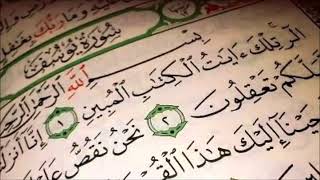 وَمَا رَبُّكَ بِغَٰفِلٍ
سُورَةُ يُوسُفَ
بِسْمِ ٱللَّهِ ٱلرَّحْمَٰنِ ٱلرَّحِيمِ
الٓر تِلْكَ ءَايَٰتُ ٱلْكِتَٰبِ ٱلْمُبِينِ ١ إِنَّآ أَنزَ
لَّكُمْ تَعْقِلُونَ ٢ نَحْنُ نَقُصُّ عَ
حَيْنَآ إِلَيْكَ هَٰذَا ٱلْقُ